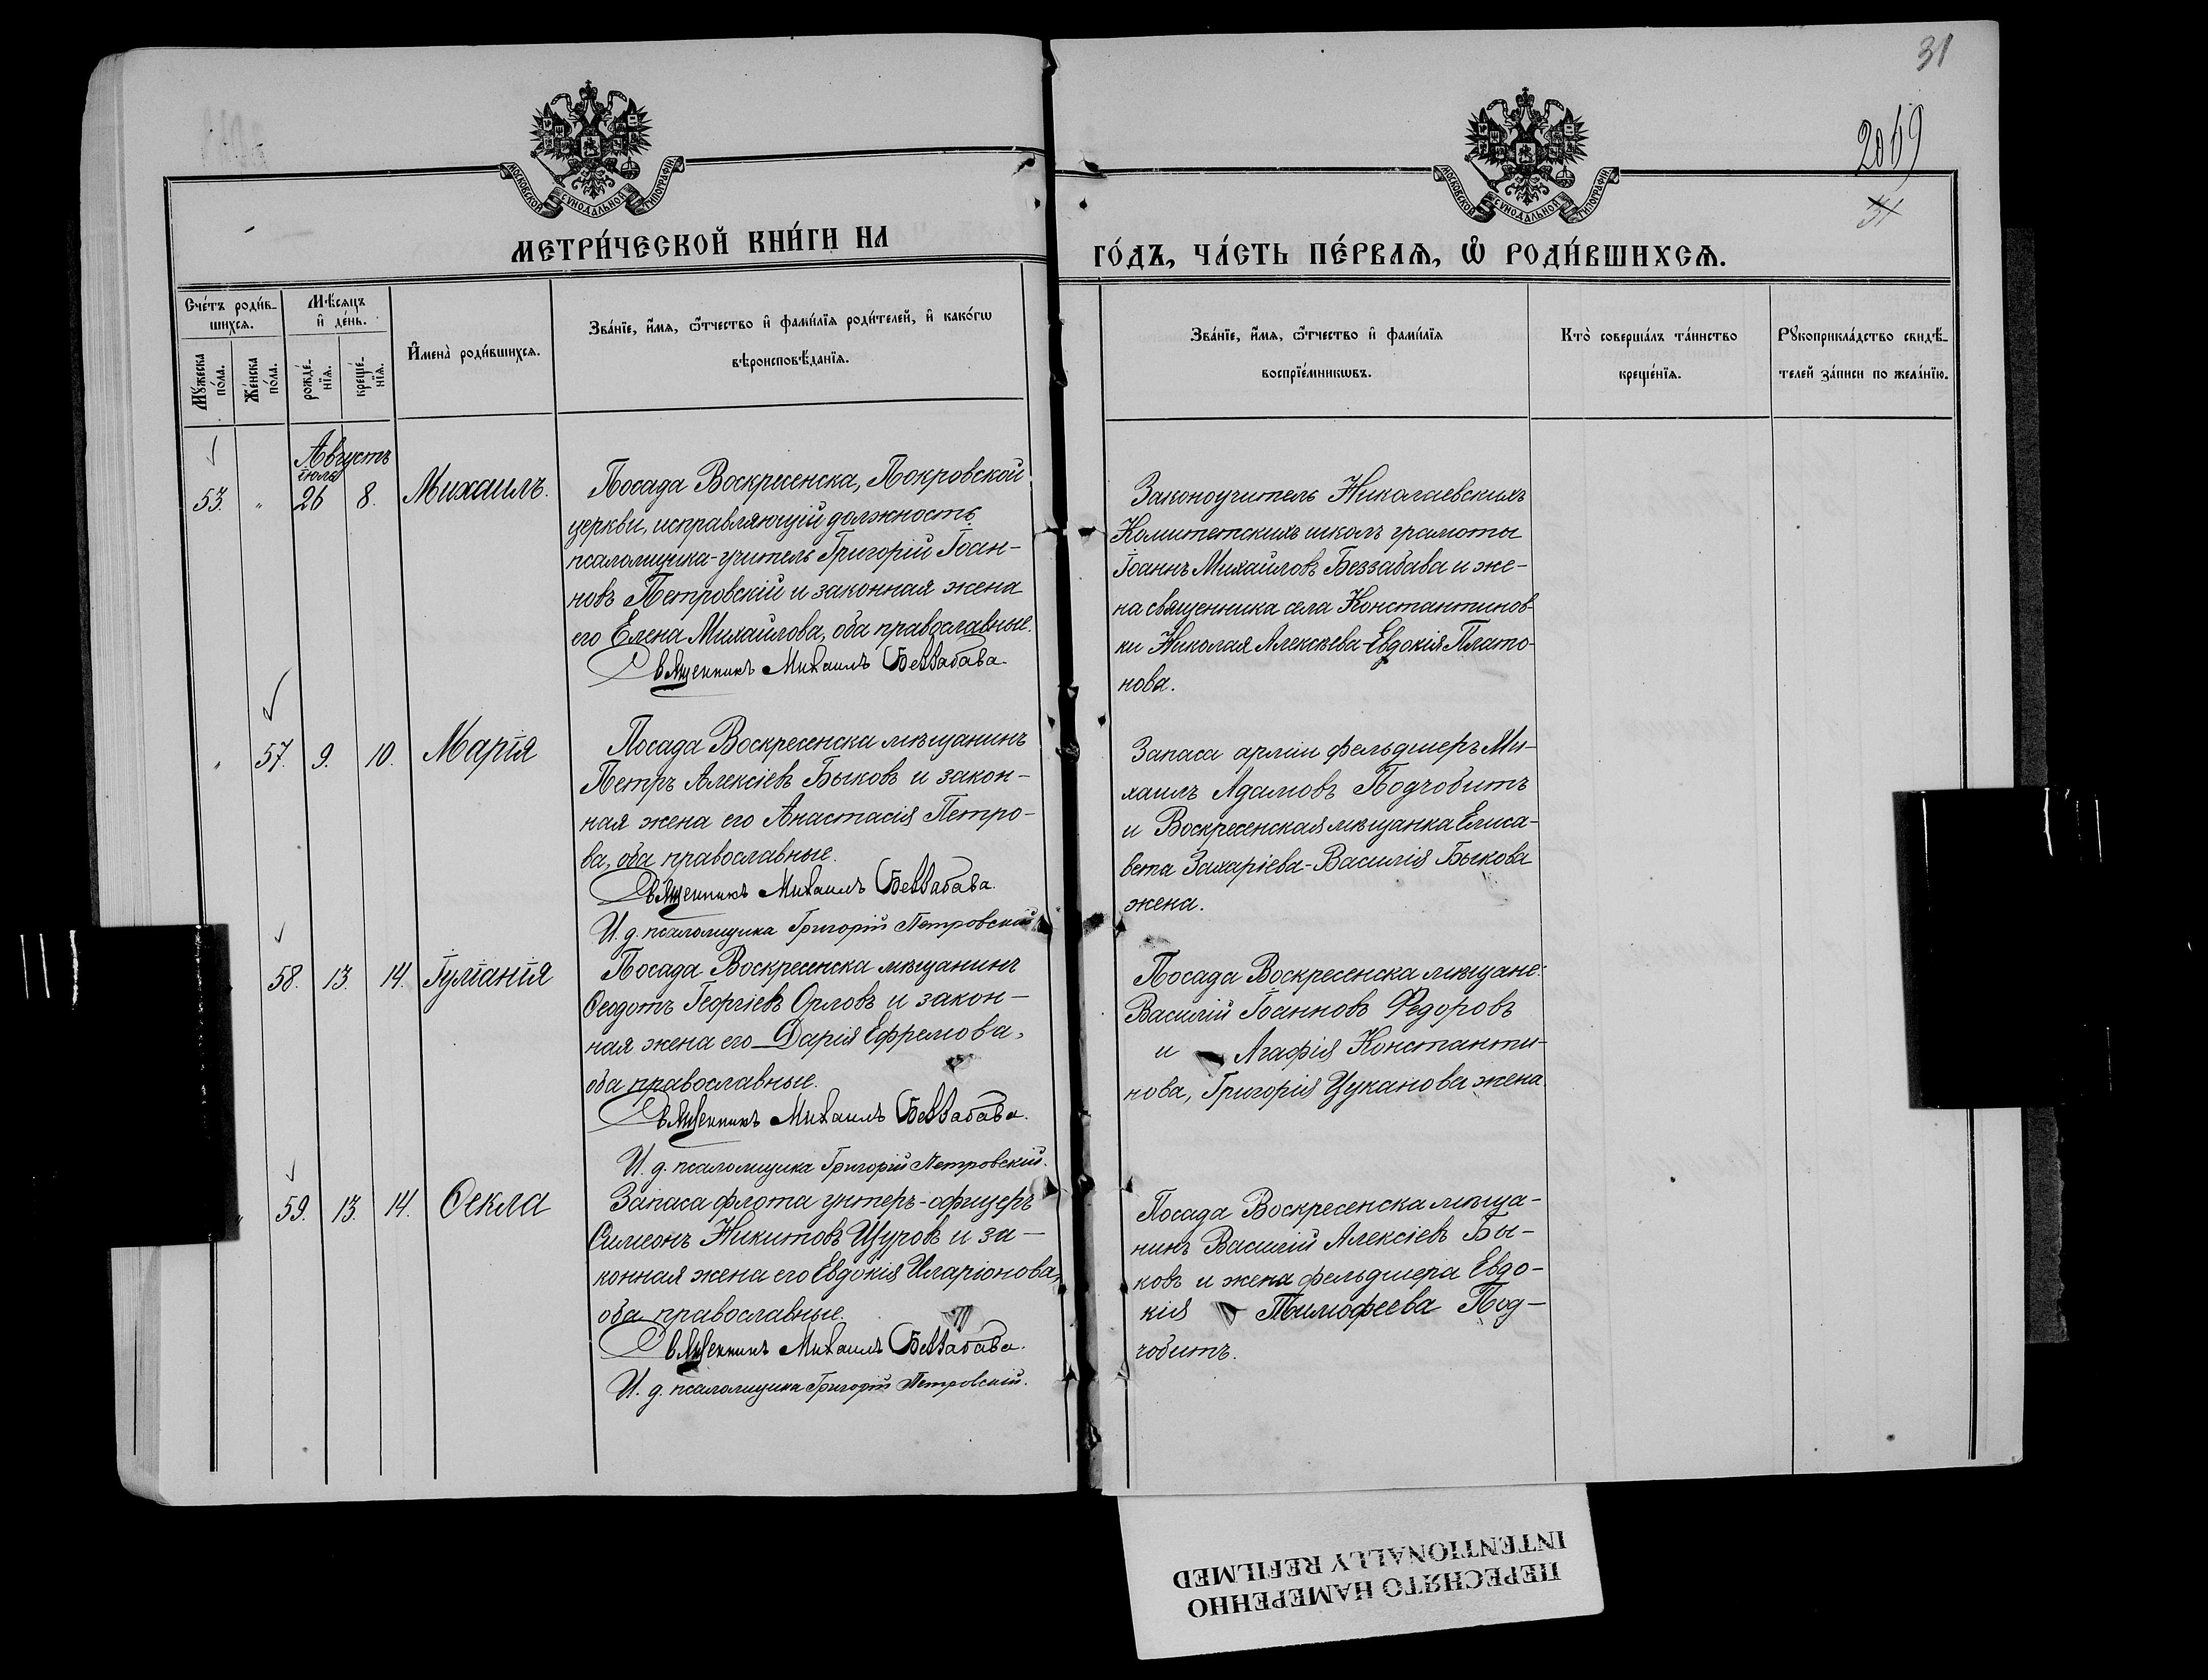 31
2069
31
МОСКОВСКОЙ СѴНОДАЛЬНОЙ ТИПОГРАФІИ
МОСКОВСКОЙ СѴНОДАЛЬНОЙ ТИПОГРАФІИ
МЕТРИ́ЧЕСКОЙ КНИ́ГИ НА
ГО́ДЪ, ЧА́СТЬ ПЕ́РВАѦ, Ѡ҆ РОДИ́ВШИХСѦ.
Сче́тъ роди́в-
шихсѧ.
Мѣ́сѧцъ
и҆ де́нь.
Мꙋ́жеска
по́ла.
Же́нска
по́ла.
рожде́-
нїѧ.
креще́-
нїѧ.
И҆мена̀ роди́вшихсѧ.
Зва́нїе, и҆́мѧ, ѻ҆́тчество и҆ фами́лїѧ роди́телей, и҆ како́гѡ
вѣроисповѣ́данїѧ.
Зва́нїе, и҆́мѧ, ѻ҆́тчество и҆ фами́лїѧ
воспрїе́мникѡвъ.
Кто̀ соверша́лъ та́инство
креще́нїѧ.
Рꙋкоприкла́дство свидѣ́-
телей за́писи по жела́нїю.
Августъ
іюля
53. " 26 8. Михаилъ.
Посада Воскресенска, Покровской
церкви, исправляющій должность
псаломщика-учитель Григорій Іоан-
новъ Петровскій и законная жена
его Елена Михайлова, оба православные.
Священникъ Михаилъ Беззабава.
Законоучитель Николаевскихъ
Комитетскихъ школъ грамоты
Іоаннъ Михайловъ Беззабава и же-
на священника села Константинов-
ки Николая Алексѣева-Евдокія Плато-
нова.
" 57. 9. 10. Марія
Посада Воскресенска мѣщанинъ
Петръ Алексіевъ Быковъ и закон-
ная жена его Анастасія Петро-
ва, оба православные.
Священникъ Михаилъ Беззабава.
И. д. псаломщика Григорій Петровскій
Запаса арміи фельдшеръ Ми-
хаилъ Адамовъ Подчобитъ
и Воскресенская мѣщанка Елиса-
вета Захаріева-Василія Быкова
жена.
58. 13. 14. Іуліанія
Посада Воскресенска мѣщанинъ
Ѳеодотъ Георгіевъ Орловъ и закон-
ная жена его Дарія Ефремова,
оба православные.
Священникъ Михаилъ Беззабава.
И. д. псаломщика Григорій Петровскій.
Посада Воскресенска мѣщане:
Василій Іоанновъ Федоровъ
и Агафія Константи-
нова, Григорія Цуканова жена.
" 59. 13. 14. Ѳекла
Запаса флота унтеръ-офицеръ
Симеонъ Никитовъ Щуровъ и за-
конная жена его Евдокія Иларіонова,
оба православные.
Священникъ Михаилъ Беззабава.
И. д. псаломщика Григорій Петровскій.
Посада Воскресенска мѣща-
нинъ Василій Алексіевъ Бы-
ковъ и жена фельдшера Евдо-
кія Тимофеева Под-
чобитъ.
ПЕРЕСНЯТО НАМЕРЕННО
INTENTIONALLY REFILMED